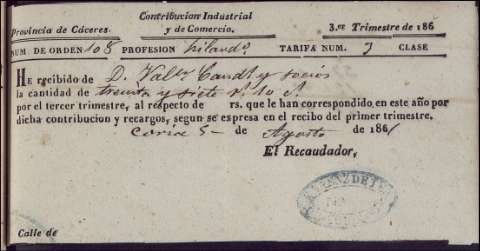 Provincia de Cáceres.
Contribucion Industrial
y de Comercio.
3.er Trimestre de 186
NUM. DE ORDEN 108 PROFESION hilando. TARIFA NUM. 3 CLASE
HE recibido de D. Val.n y socios
la cantidad de treinta y siete r.s 10 c.s
por el tercer trimestre, al respecto de rs. que le han correspondido en este año por
dicha contribucion y recargos, segun se espresa en el recibo del primer trimestre.
Coria 5 de Agosto de 1861
El Recaudador,
Calle de